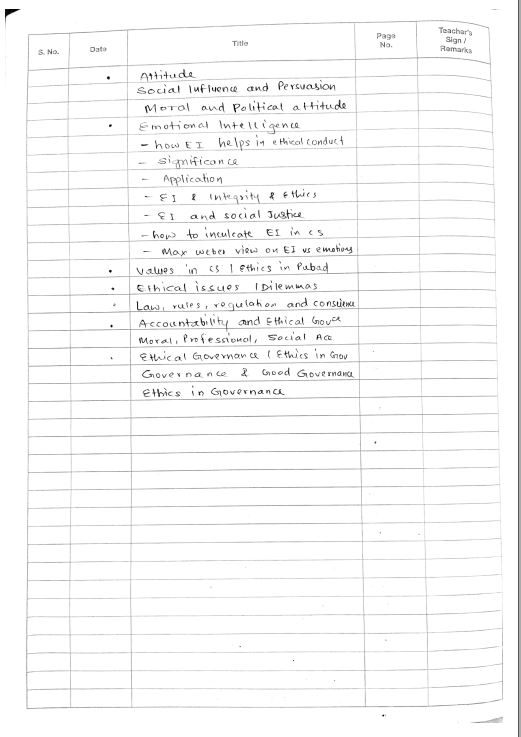 S. No. Date Title Page No. Teacher's Sign / Remarks
• Attitude
Social Influence and Persuasion
Moral and Political attitude
• Emotional Intelligence
- how EI helps in ethical conduct
- Significance
- Application
- EI & Integrity & Ethics
- EI and social Justice
- how to inculcate EI in CS
- Max weber view on EI vs emotions
• Values in CS | Ethics in Pubad
• Ethical issues | Dilemmas
• Law, rules, regulation and conscience
• Accountability and Ethical Govce
Moral, Professional, Social Acc
• Ethical Governance | Ethics in Gov
Governance & Good Governance
Ethics in Governance